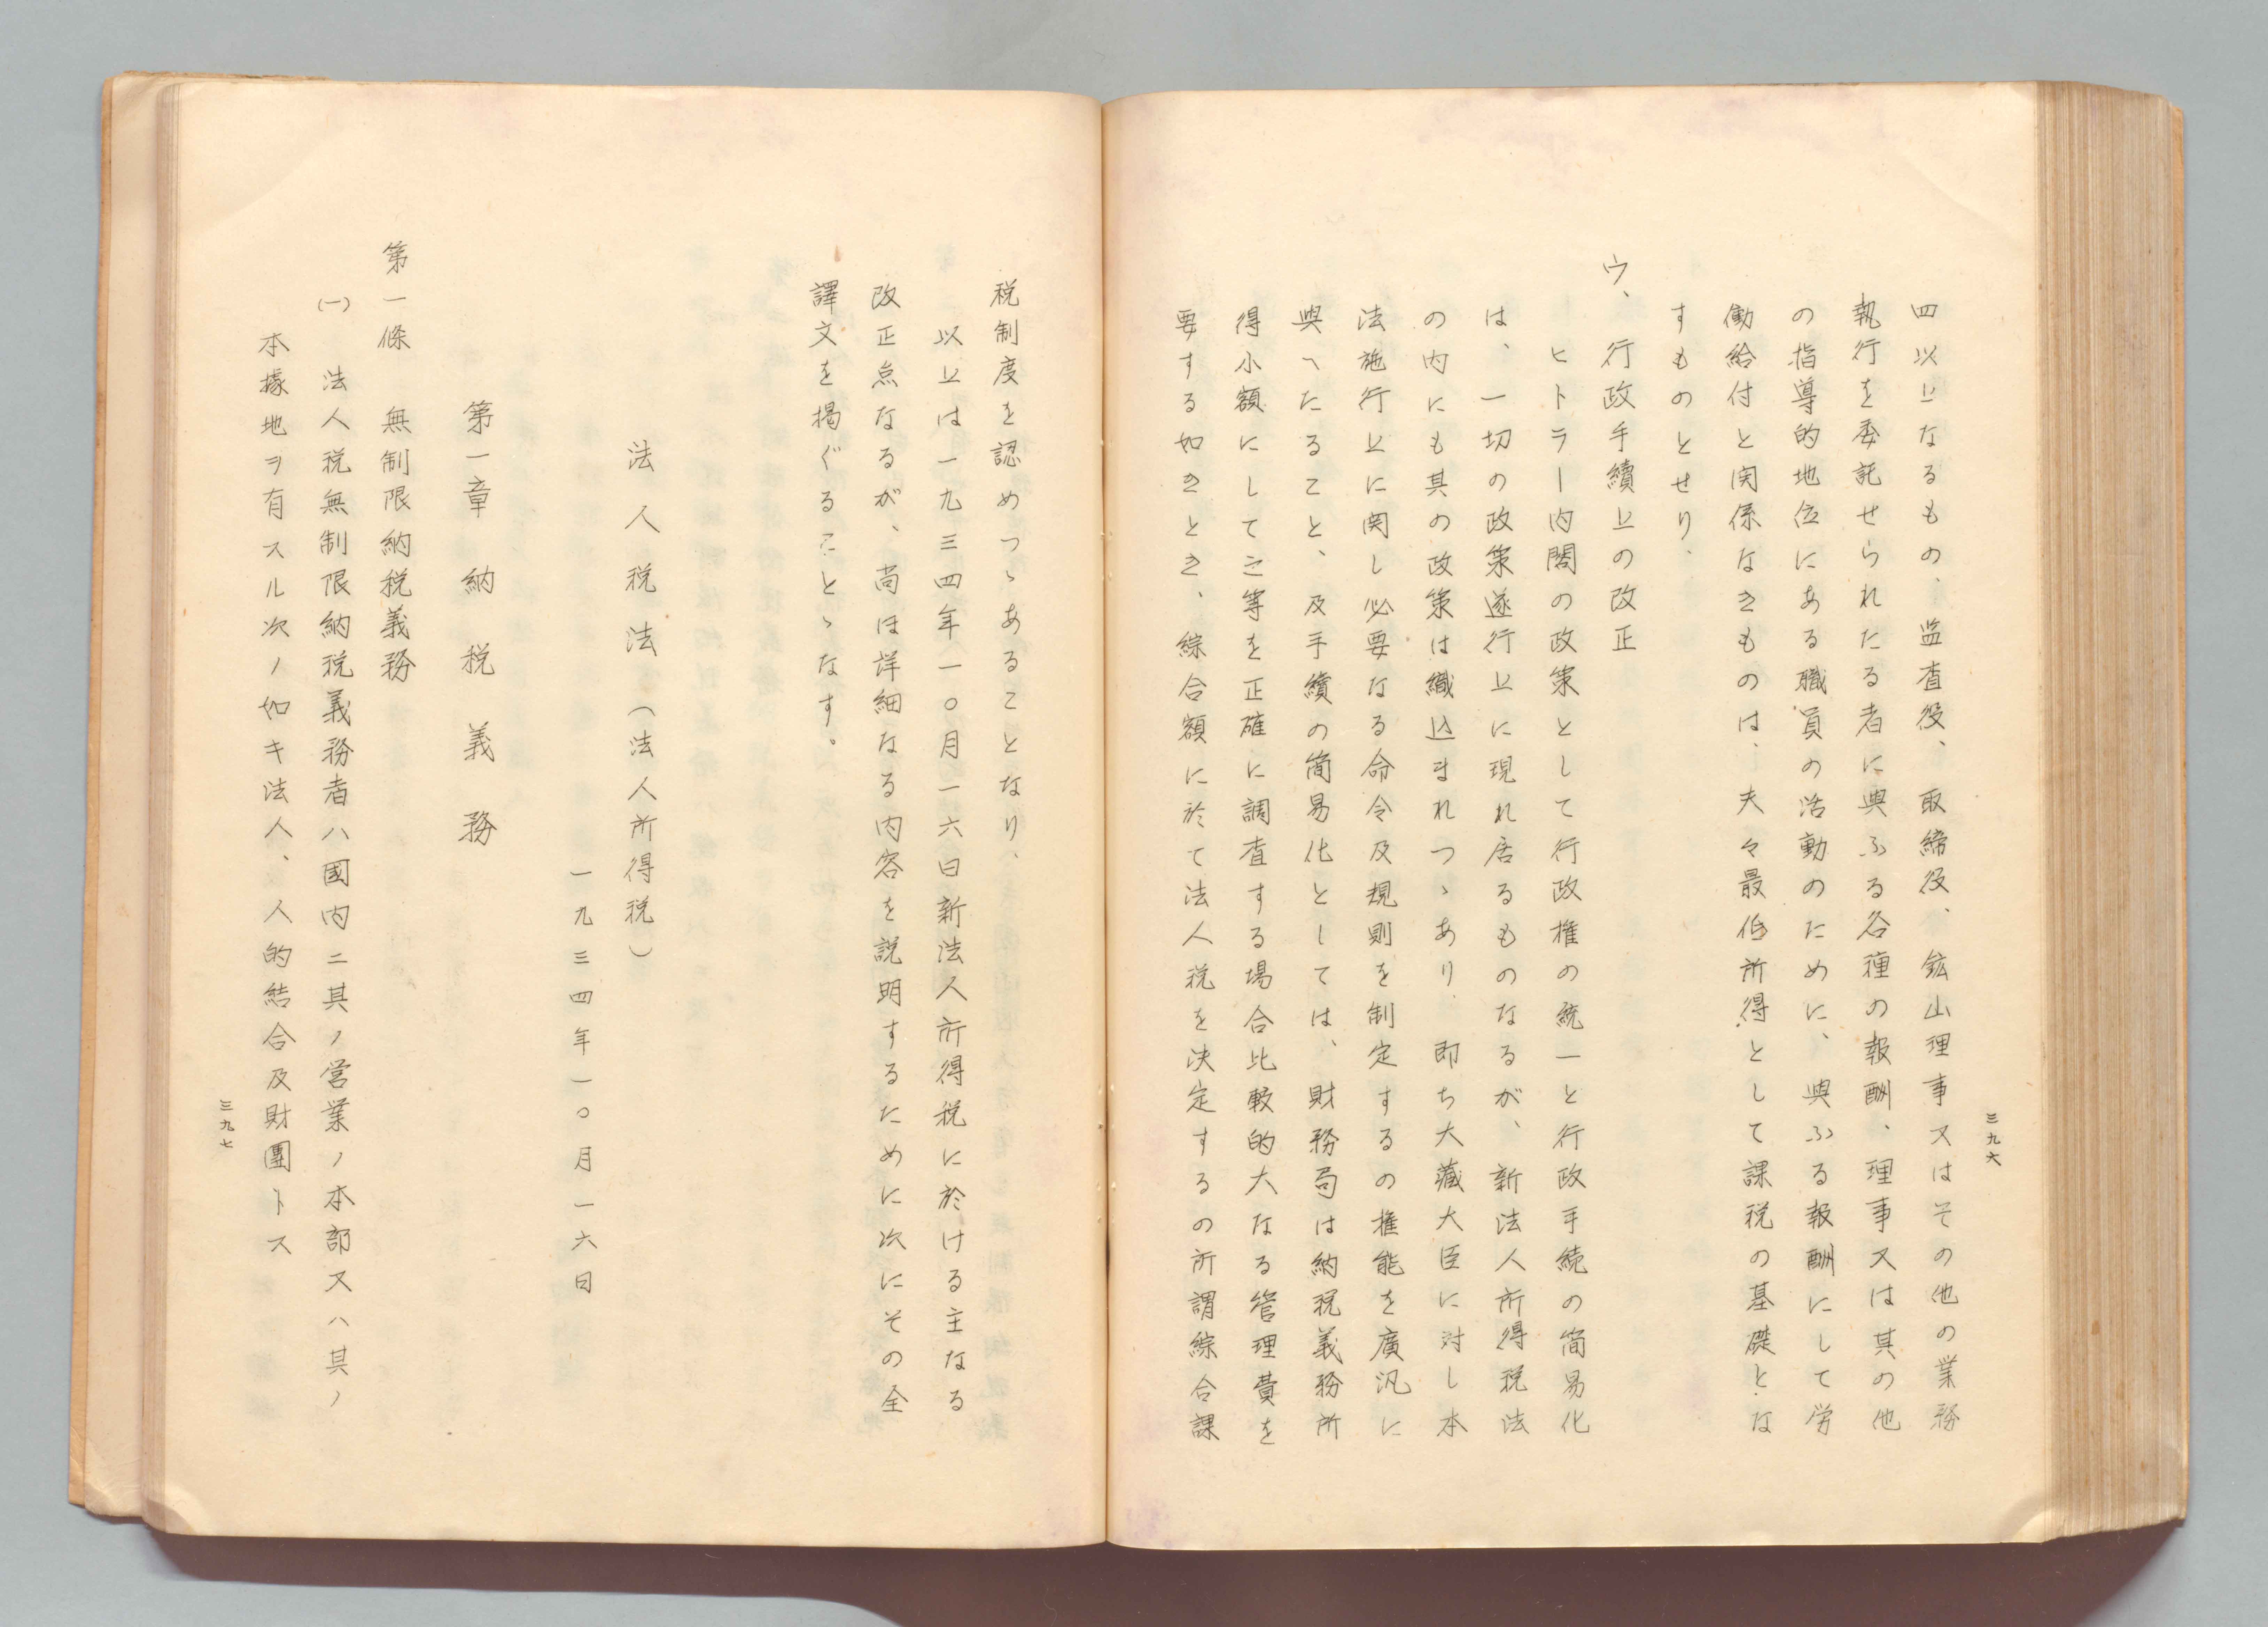 三九六
四以上なるもの、監査役、取締役、鉱山理事又はその他の業務
執行を委託せられたる者に與ふる各種の報酬、理事又は其の他
の指導的地位にある職員の活動のために、與ふる報酬にして労
働給付と関係なきものは、夫々最低所得として課税の基礎とな
すものとせり、
ウ、行政手續上の改正
ヒトラー内閣の政策として行政権の統一と行政手続の簡易化
は、一切の政策遂行上に現れ居るものなるが、新法人所得税法
の内にも其の政策は織込まれつゝあり、即ち大藏大臣に対し本
法施行上に関し必要なる命令及規則を制定するの権能を廣汎に
與へたること、及手續の簡易化としては、財務局は納税義務所
得小額にして之等を正確に調査する場合比較的大なる管理費を
要する如きとき、綜合額に於て法人税を決定するの所謂綜合課
税制度を認めつゝあることなり、
以上は一九三四年一〇月一六日新法人所得税に於ける主なる
改正点なるが、尚ほ詳細なる内容を説明するために次にその全
譯文を掲ぐることゝなす。
法人税法（法人所得税）
一九三四年一〇月一六日
第一章 納税義務
第一條 無制限納税義務
(一) 法人税無制限納税義務者ハ國内ニ其ノ営業ノ本部又ハ其ノ
本據地ヲ有スル次ノ如キ法人、人的結合及財團トス
三九七